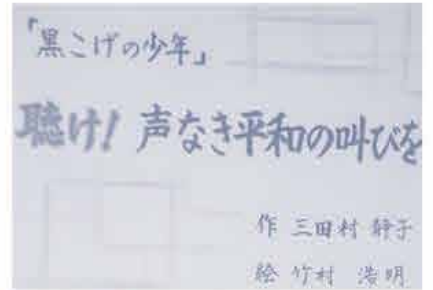 「黒こげの少年」
聴け！声なき平和の叫びを
作 三田村 静子
絵 竹村 浩明